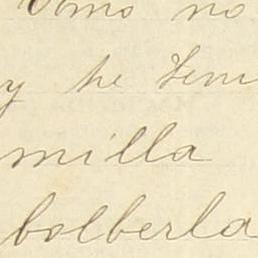 Como no
y he teni
milla
bolberla